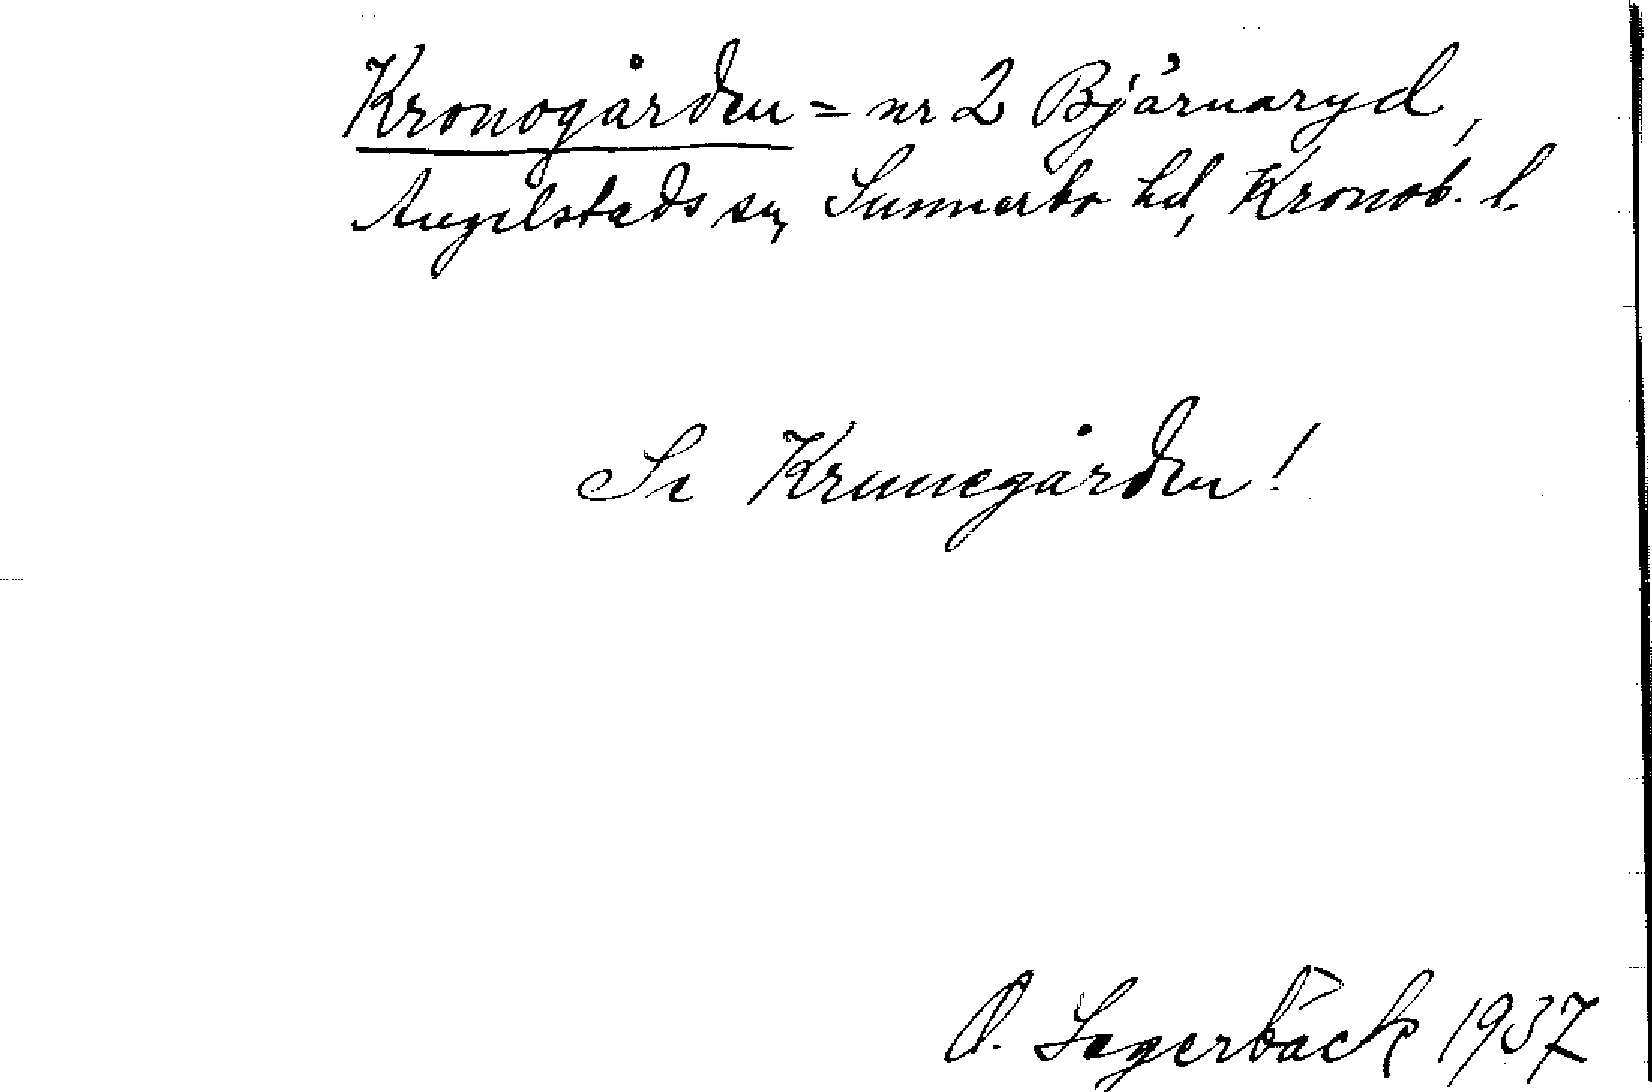 Kronogården = nr 2 Bjärnaryd,
Angelstads sn, Sunnerbo hd, Kronob. l.
Se Krunegården!
O. Lagerbäck 1937